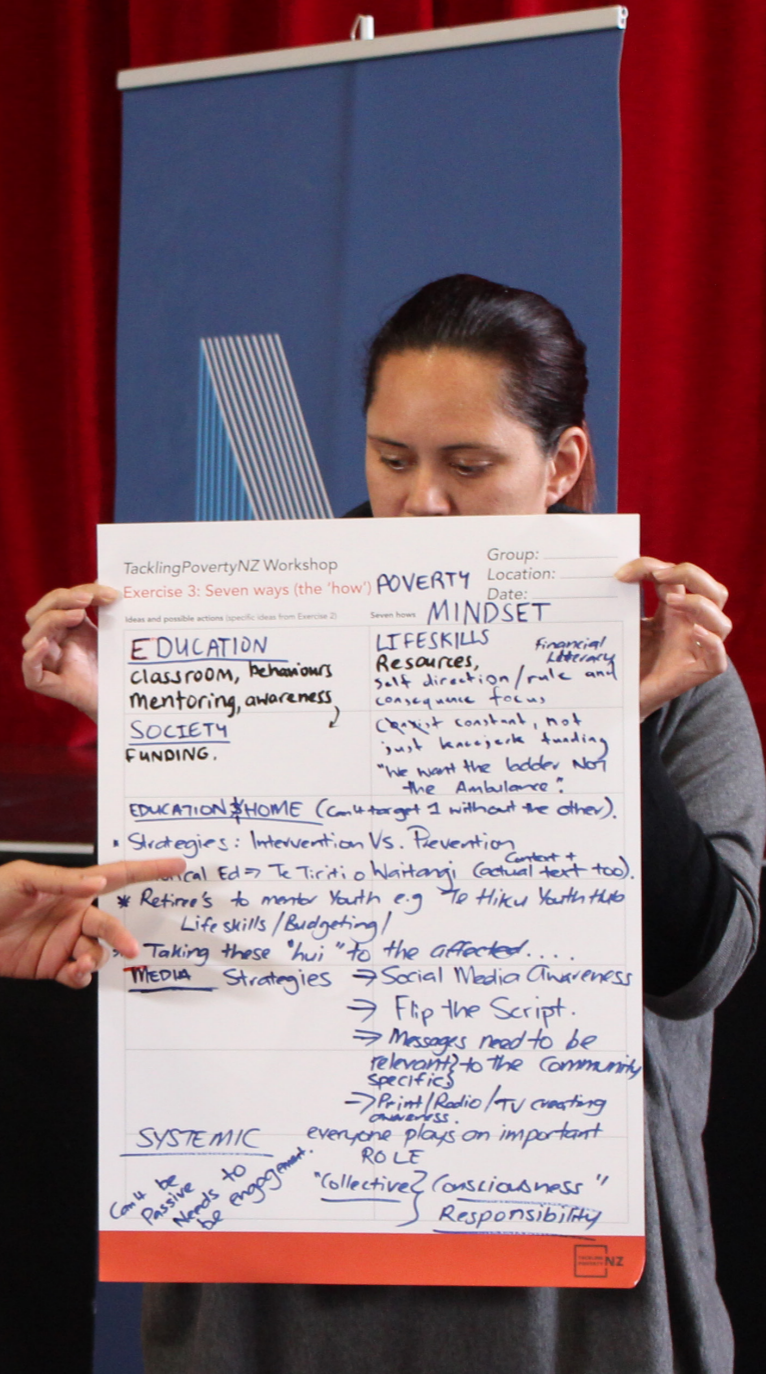 TacklingPovertyNZ Workshop
Group:
Location:
Date:
Exercise 3: Seven ways (the 'how') POVERTY
MINDSET
Ideas and possible actions (specific ideas from Exercise 2)
Seven hows
EDUCATION
classroom, behaviours
Mentoring, awareness
SOCIETY
FUNDING.
LIFESKILLS
Financial
Literacy
Resources,
self direction/rule and
consequence focus,
constant, not
just kneejerk funding
"We want the ladder NOT
the Ambulance".
EDUCATION & HOME (Can't target 1 without the other).
* Strategies: Intervention Vs. Prevention
Ed => Te Tiriti o Waitangi (Context +
actual text too).
* Retiree's to mentor Youth e.g Te Hiku Youth Hub
Life skills /Budgeting/
Taking these "hui" to the affected....
MEDIA Strategies => Social Media Awareness
=> Flip the Script.
=> Messages need to be
relevant} to the Community
specific}
=> Print/Radio/TV creating
awareness.
SYSTEMIC
everyone plays an important
ROLE
Can't be
Passive
Needs to
be engagement.
"Collective} Consciousness"
Responsibility
TACKLING
POVERTY NZ